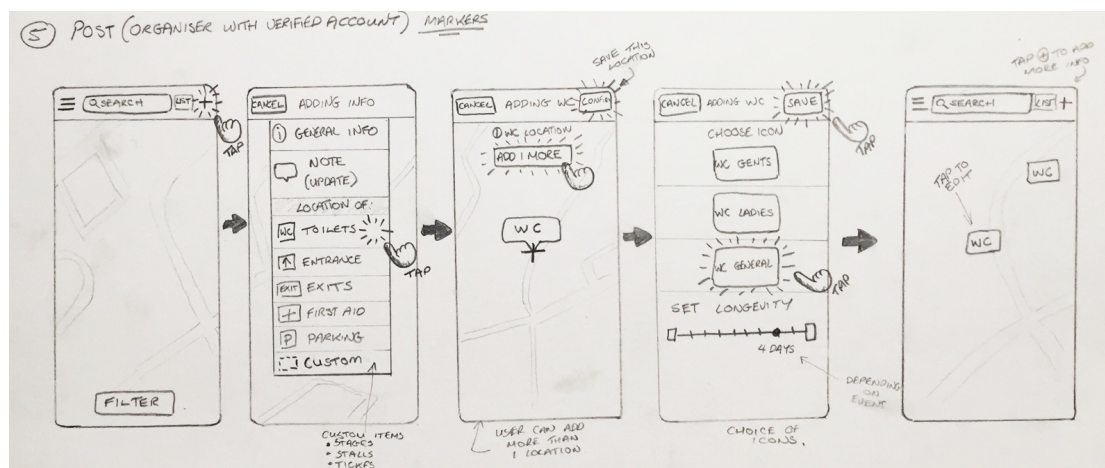 5 POST (ORGANISER WITH VERIFIED ACCOUNT) MARKERS
SEARCH
LIST
+
TAP
FILTER
CANCEL ADDING INFO
i GENERAL INFO
NOTE
(UPDATE)
LOCATION OF:
WC TOILETS
TAP
ENTRANCE
EXIT EXITS
+ FIRST AID
P PARKING
CUSTOM
CUSTOM ITEMS
• STAGES
• STALLS
• TICKETS
SAVE THIS
LOCATION
CANCEL ADDING WC CONFIRM
① WC LOCATION
ADD 1 MORE
WC
USER CAN ADD
MORE THAN
1 LOCATION
CANCEL ADDING WC SAVE
TAP
CHOOSE ICON
WC GENTS
WC LADIES
WC GENERAL
TAP
SET LONGEVITY
4 DAYS
DEPENDING
ON
EVENT
CHOICE OF
ICONS.
TAP + TO ADD
MORE INFO
SEARCH
LIST
+
WC
TAP TO
EDIT
WC